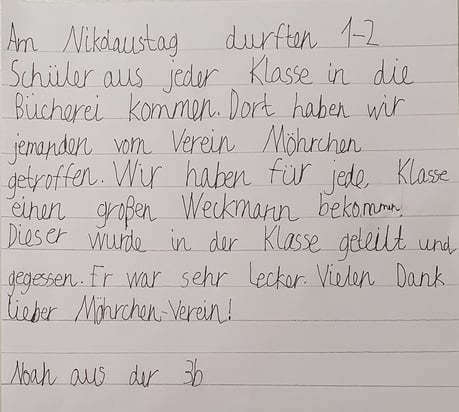 Am Nikolaustag durften 1-2
Schüler aus jeder Klasse in die
Bücherei kommen. Dort haben wir
jemanden vom Verein Möhrchen
getroffen. Wir haben für jede Klasse
einen großen Weckmann bekommen.
Dieser wurde in der Klasse geteilt und
gegessen. Er war sehr lecker. Vielen Dank
lieber Möhrchen-Verein!
Noah aus der 3b